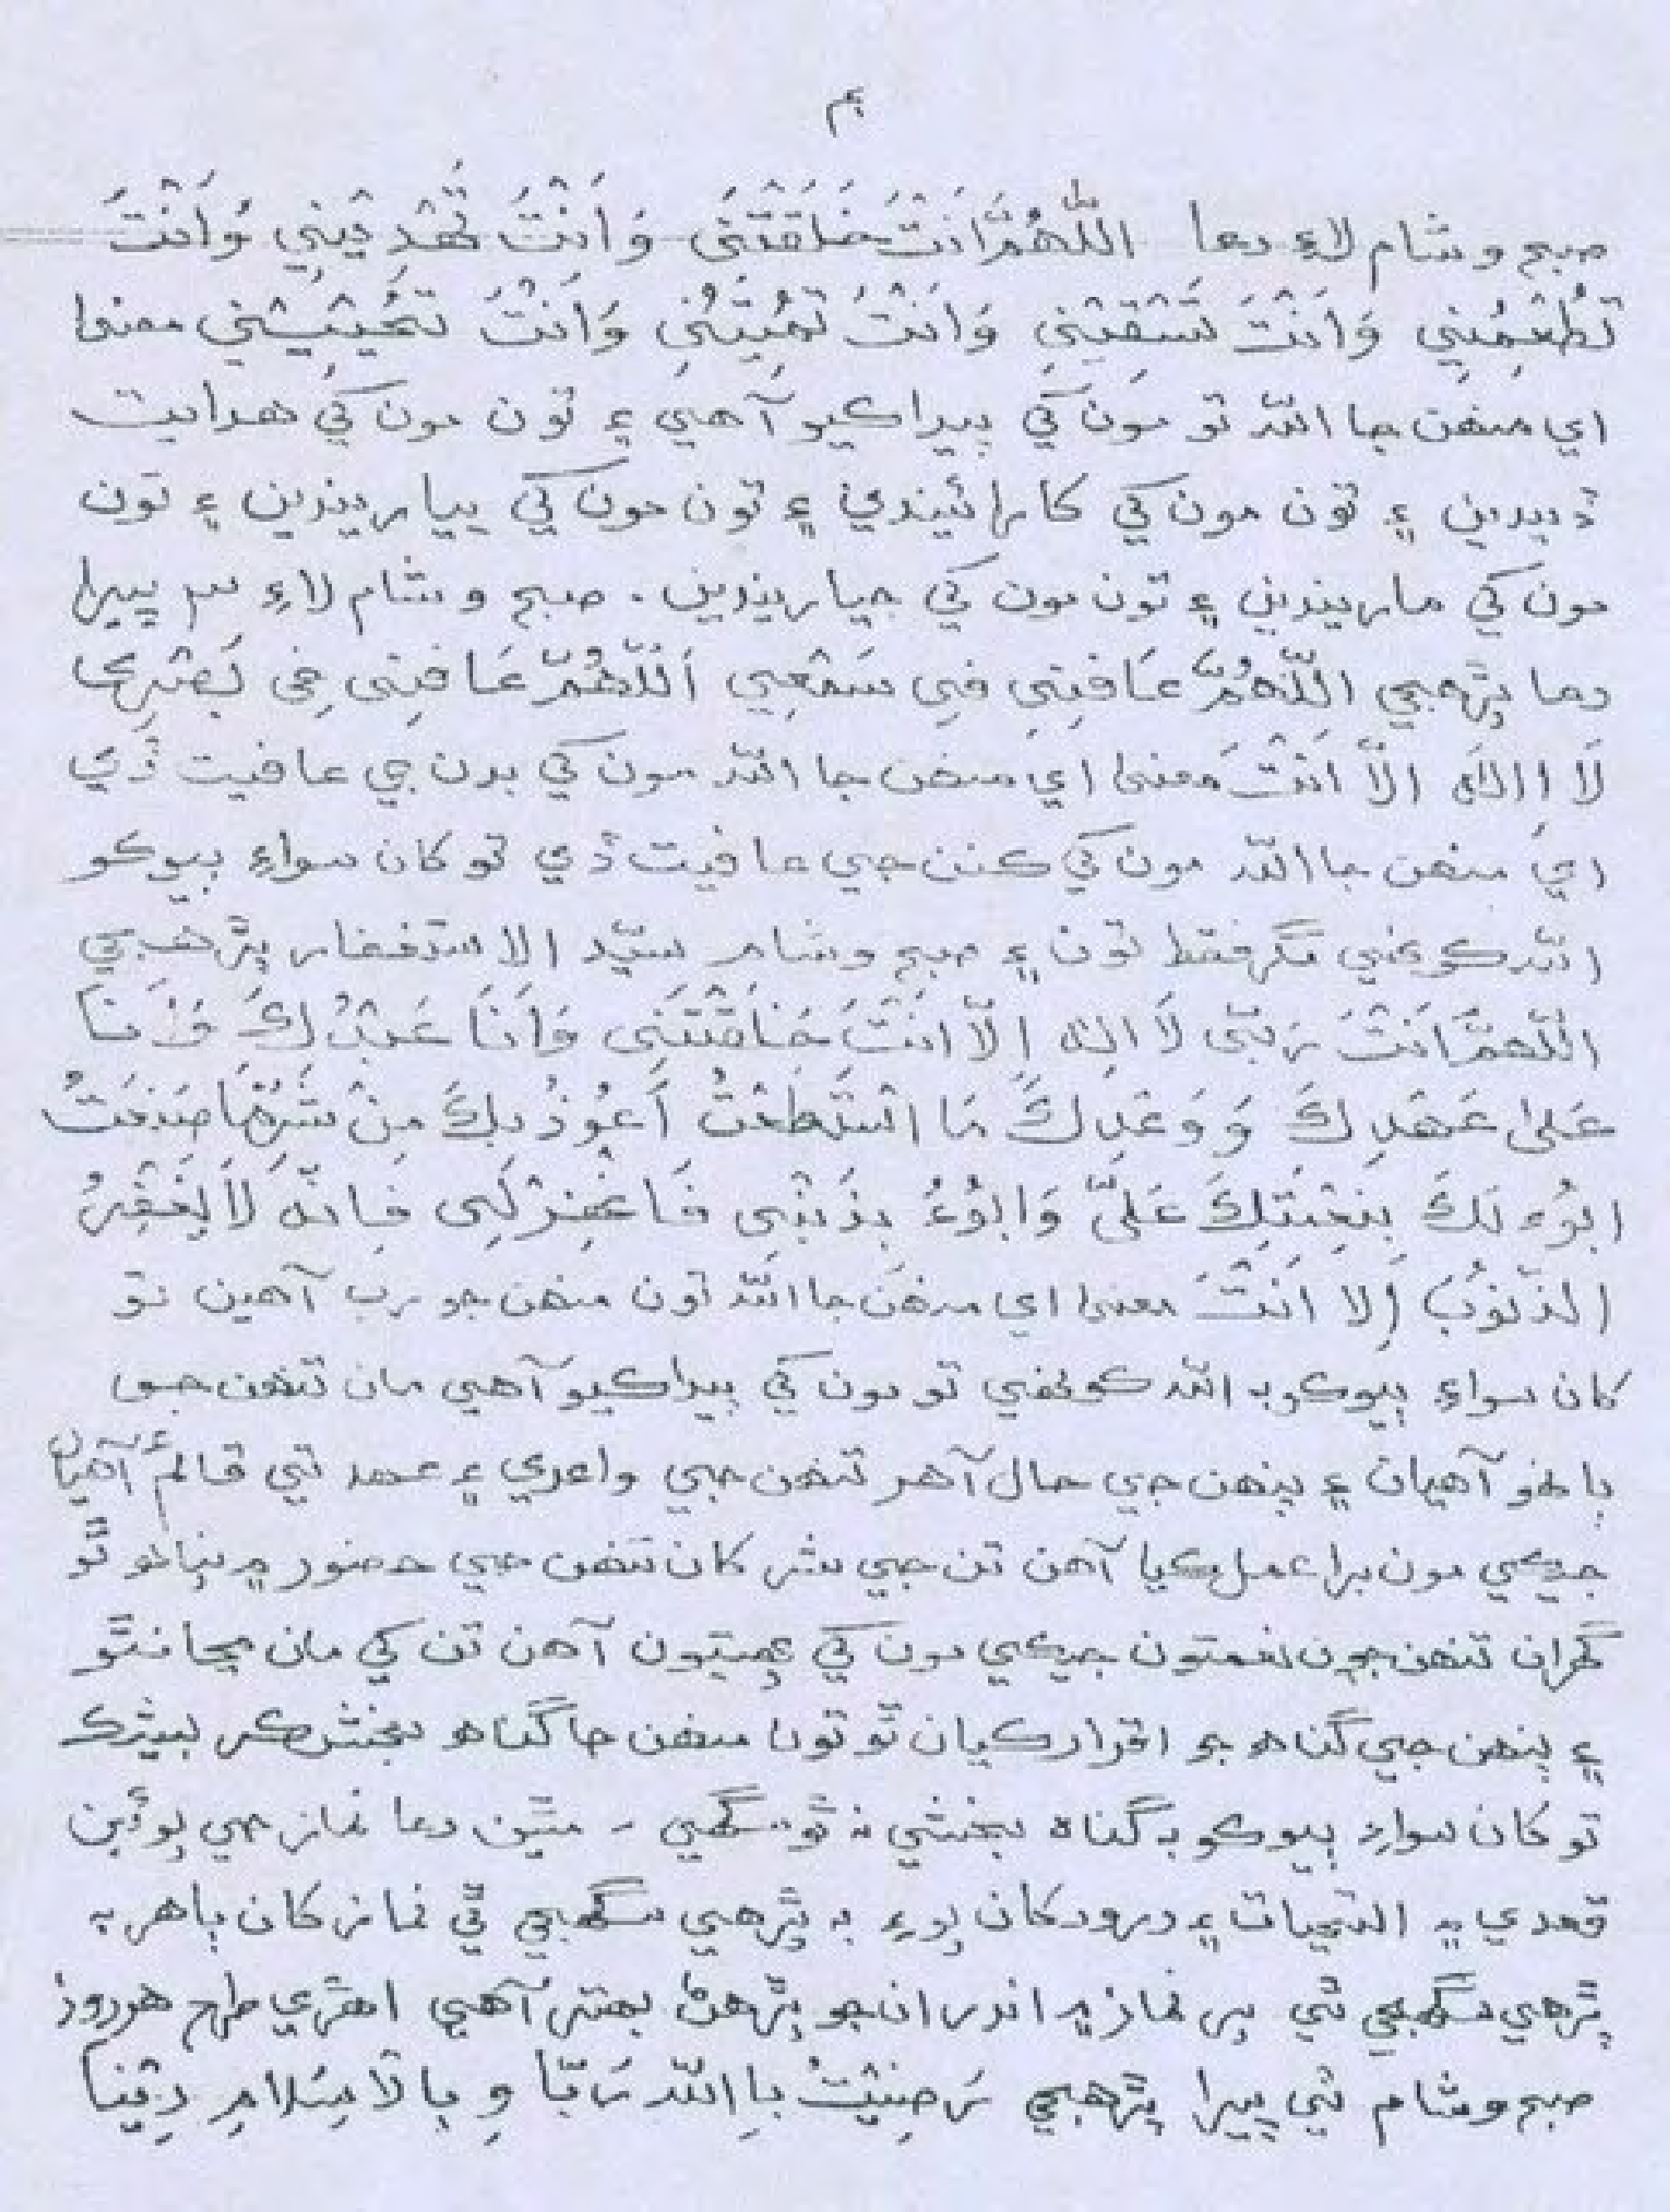 ۾
صبح و شام لاءِ دعا اَللّٰهُمَّ اَنْتَ خَلَقْتَنِي وَاَنْتَ تَهْدِيْنِي وَاَنْتَ
تُطْعِمُنِي وَاَنْتَ تَسْقِيْنِي وَاَنْتَ تُمِيْتُنِي وَاَنْتَ تُحْيِيْنِي معنيٰ
اي منهن جا الله تو مون کي پيدا ڪيو آهي ۽ تون مون کي هدايت
ڏيندين ۽ تون مون کي کارائيندي ۽ تون مون کي پياريندين ۽ تون
مون کي ماريندين ۽ تون مون کي جياريندين . صبح و شام لاءِ ٣ ڀيرا
دعا پڙهجي اَللّٰهُمَّ عَافِنِي فِي سَمْعِي اَللّٰهُمَّ عَافِنِي فِي بَصَرِي
لَا اِلٰهَ اِلَّا اَنْتَ معنيٰ اي منهن جا الله مون کي بدن جي عافيت ڏي
اي منهن جا الله مون کي ڪنن جي عافيت ڏي تو کان سواءِ ٻيو ڪو
الله ڪونهي مگر فقط تون ۽ صبح و شام سيّد الاستغفار پڙهجي
اَللّٰهُمَّ اَنْتَ رَبِّي لَا اِلٰهَ اِلَّا اَنْتَ خَلَقْتَنِي وَاَنَا عَبْدُكَ وَاَنَا
عَلٰى عَهْدِكَ وَوَعْدِكَ مَا اسْتَطَعْتُ اَعُوْذُ بِكَ مِنْ شَرِّ مَا صَنَعْتُ
اَبُوْءُ لَكَ بِنِعْمَتِكَ عَلَيَّ وَاَبُوْءُ بِذَنْبِي فَاغْفِرْ لِي فَاِنَّهُ لَا يَغْفِرُ
الذُّنُوْبَ اِلَّا اَنْتَ معنيٰ اي منهن جا الله تون منهن جو رب آهين تو
کان سواءِ ٻيو ڪو به الله ڪونهي تو مون کي پيدا ڪيو آهي مان تنهن جو
ٻانهو آهيان ۽ پنهن جي حال آهر تنهن جي واعدي ۽ عهد تي قائم آهيان
جيڪي مون برا عمل ڪيا آهن تن جي شر کان تنهن جي حضور ۾ پناهه ٿو
گهران تنهن جون نعمتون جيڪي مون کي آهن تن کي مان مڃان ٿو
۽ پنهن جي گناهه جو اقرار ڪيان ٿو تون منهن جا گناهه بخش ڪر بيشڪ
تو کان سواءِ ٻيو ڪو به گناه بخشي نه ٿو سگهي - مٿين دعا نماز جي پوئين
قعدي ۾ التحيات ۽ درود کان پوءِ به پڙهي سگهجي ٿي نماز کان ٻاهر به
پڙهي سگهجي ٿي پر نماز ۾ اندر ان جو پڙهڻ بهتر آهي اهڙي طرح هر روز
صبح و شام ٽي ڀيرا پڙهجي رَضِيْتُ بِاللّٰهِ رَبًّا وَ بِالْاِسْلَامِ دِيْنًا